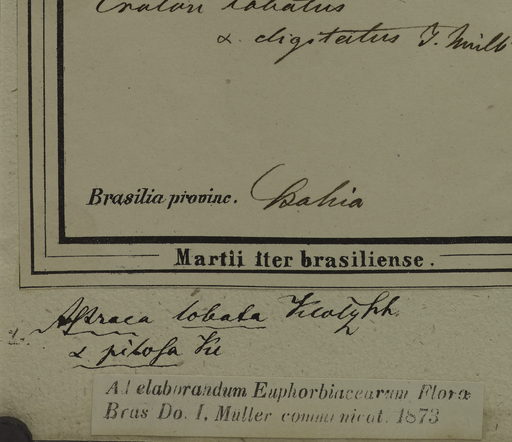 Croton lobatus
α digitatus J. Müll
Brasilia provinc. Bahia
Martii Iter brasiliense.
Astraea lobata Klotzsch.
α pilosa Kl
Ad elaborandum Euphorbiacearum Floræ
Bras Do. I. Müller communicat. 1873